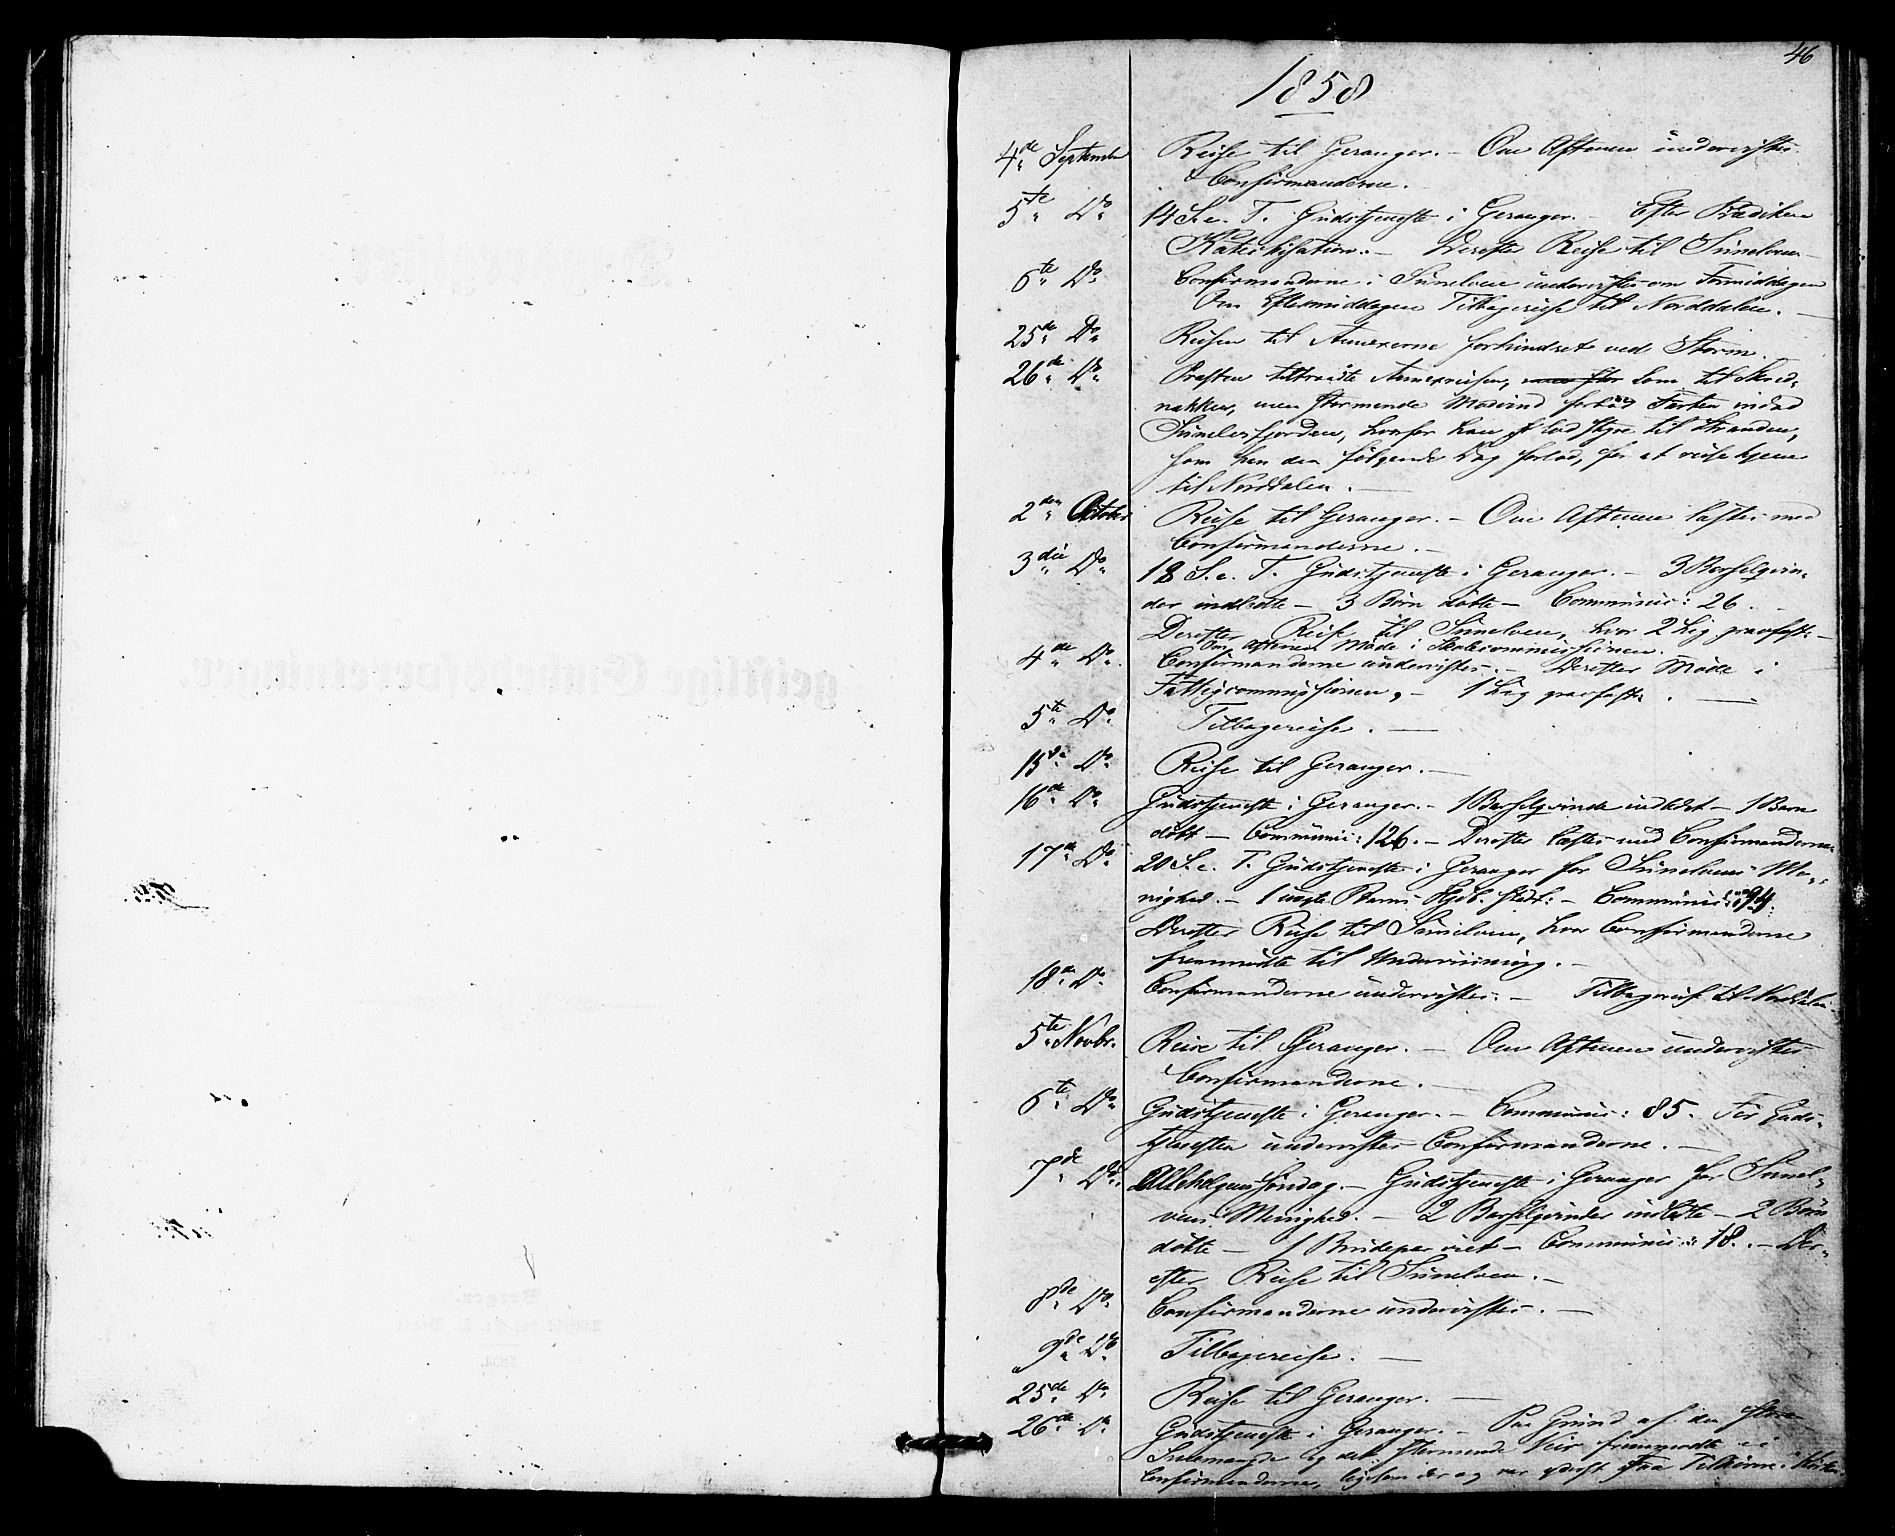 46
1858
4de September Reise til Geranger. – Om Aftenen undervistes
Confirmanderne. –
5te Do 14 S. e. T. Gudstjeneste i Geranger. – Efter Prædiken
Katechisation. – Derefter Reise til Sunelven –
6te Do Confirmanderne i Sunelven undervistes om Formiddagen
Om Eftermiddagen Tilbagereise til Norddalen. –
25de Do Reisen til Annexerne forhindret ved Storm.
26de Do Præsten tiltraadte Annexreisen, kom til Skred-
nakken, men stormende Modvind forbød Farten indad
Sunelvsfjorden, hvorfor han lod styre til Stranden,
som han den følgende Dag forlod, for at reise hjem
til Norddalen. –
2den October Reise til Geranger. – Om Aftenen læstes med
Confirmanderne. –
3die Do 18 S. e. T. Gudstjeneste i Geranger. – 3 Barselqvin-
der indledte – 3 Børn døbte – Communic: 26. –
Derefter Reise til Sunelven, hvor 2 Lig gravfæst: –
Om Aftenen Møde i Skolecommissionen.
4de Do Confirmanderne undervistes. – Derefter Møde i
Fattigcommissionen, – 1 Lig gravfæst: . –
5te Do Tilbagereise. –
15de Do Reise til Geranger. –
16de Do Gudstjeneste i Geranger. – 1 Barselqvinde indledet – 1 Barn
døbt – Communic: 126. – Derefter læstes med Confirmanderne
17de Do 20 S. e. T. Gudstjeneste i Geranger for Sunelvens Me-
nighed. – 1 uægte Barns Hjd. stadf: – Communic: 94.
Derefter Reise til Sunelven, hvor Confirmanderne
fremmødte til Underviisning. –
18de Do Confirmanderne undervistes: – Tilbagereise til Norddalen
5te Novbr. Reise til Geranger. – Om Aftenen undervistes
Confirmanderne. –
6te Do Gudstjeneste i Geranger. – Communic: 85. Før Guds-
tjenesten undervistes Confirmanderne. –
7de Do Allehelgens Søndag. – Gudstjeneste i Geranger for Sunel-
vens Menighed. – 2 Barselqvinder indledte – 2 Børn
døbte – 1 Brudepar viet – Communic: 18. – Der-
efter Reise til Sunelven. –
8de Do Confirmanderne undervistes. –
9de Do Tilbagereise. –
25de Do Reise til Geranger. –
26de Do Gudstjeneste i Geranger. – Paa Grund af den store
Sneemængde og det stormende Veir fremmødte ei
Confirmanderne, ligesom der og var yderst faa Tilhørere i Kirken.